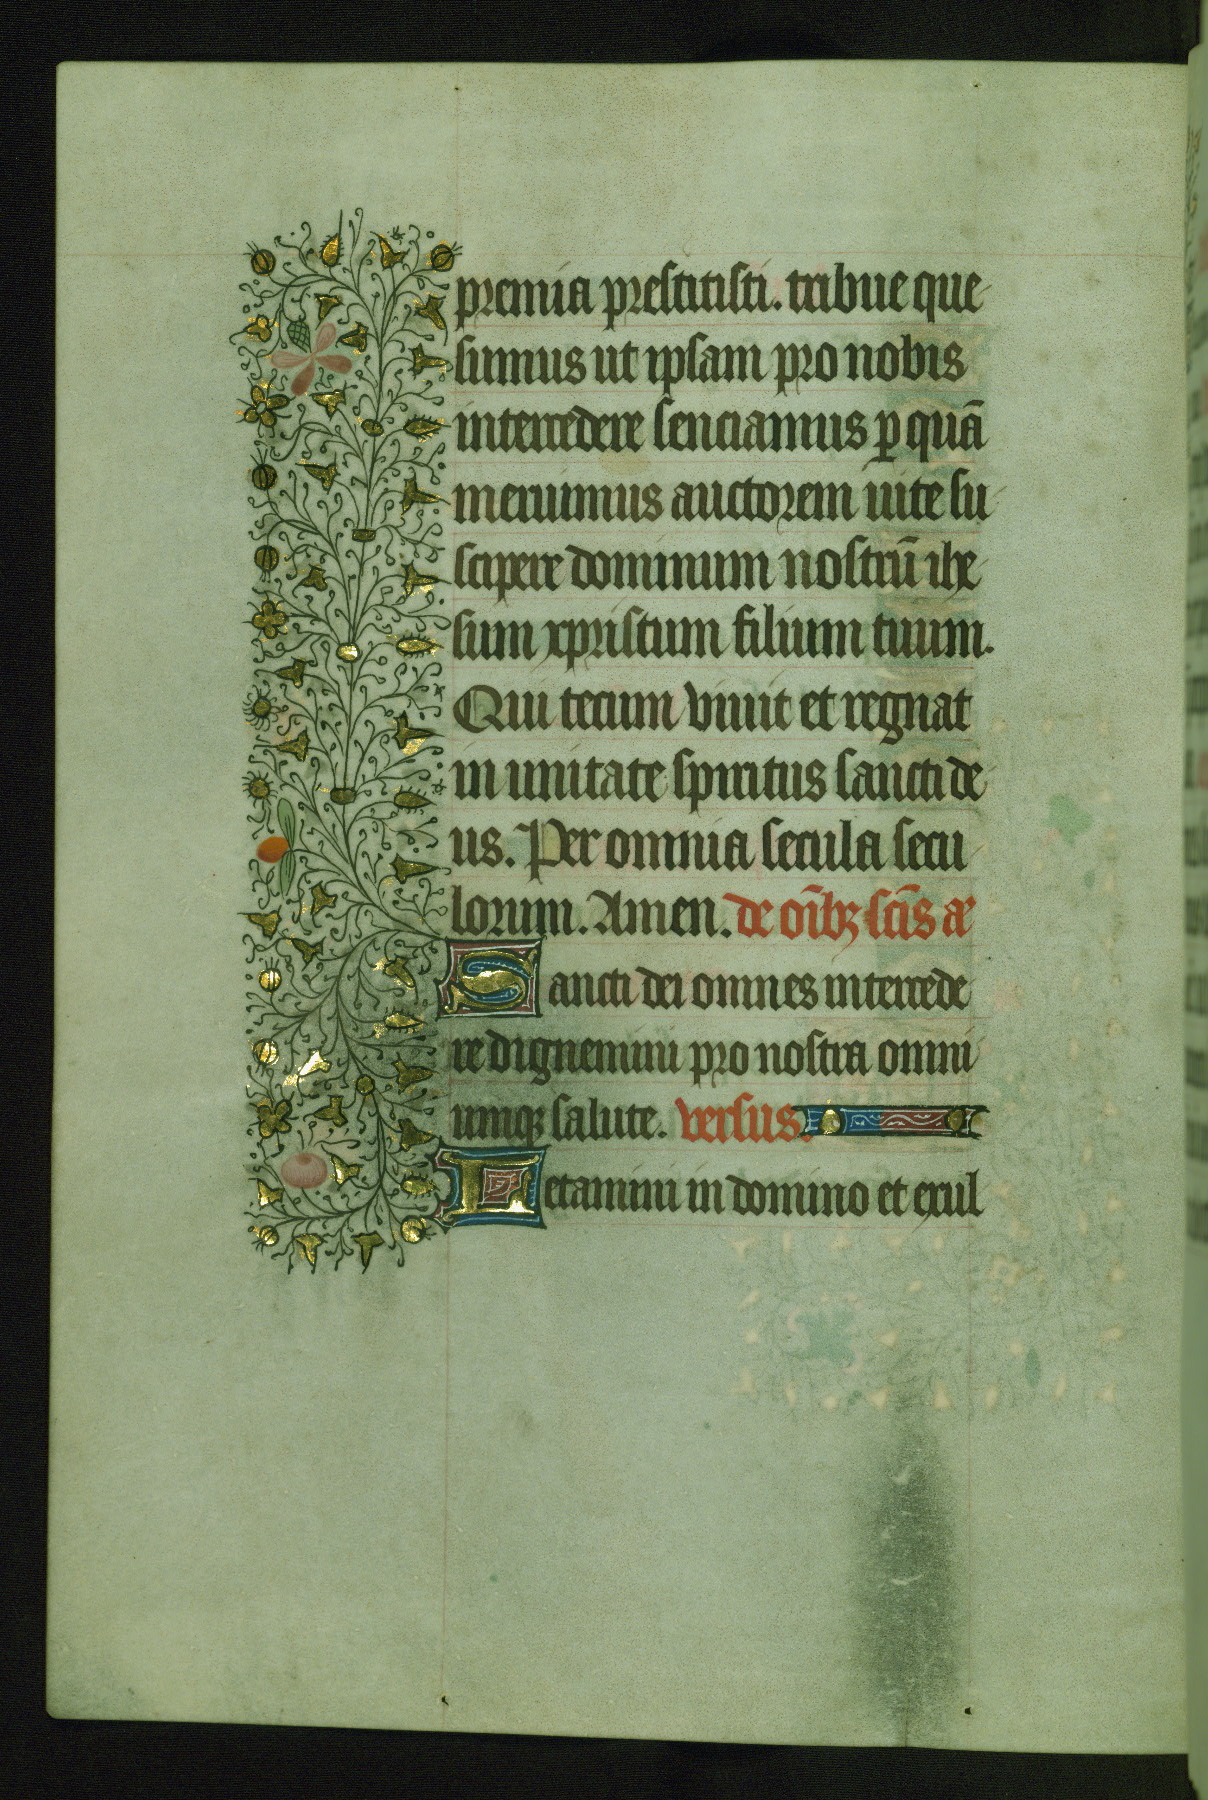 premia prestitisti. tribue que
sumus ut ipsam pro nobis
intercedere senciamus ꝑ quā
meruimus auctorem uite su
scipere dominum nostrū ihe
sum xpristum filium tuum.
Qui tecum viuit et regnat
in unitate spiritus sancti de
us. Per omnia secula secu
lorum. Amen. de oībꝫ scīs añ
Sancti dei omnes intercede
re dignemini pro nostra omni
umqꝫ salute. versus.
Letamini in domino et exul